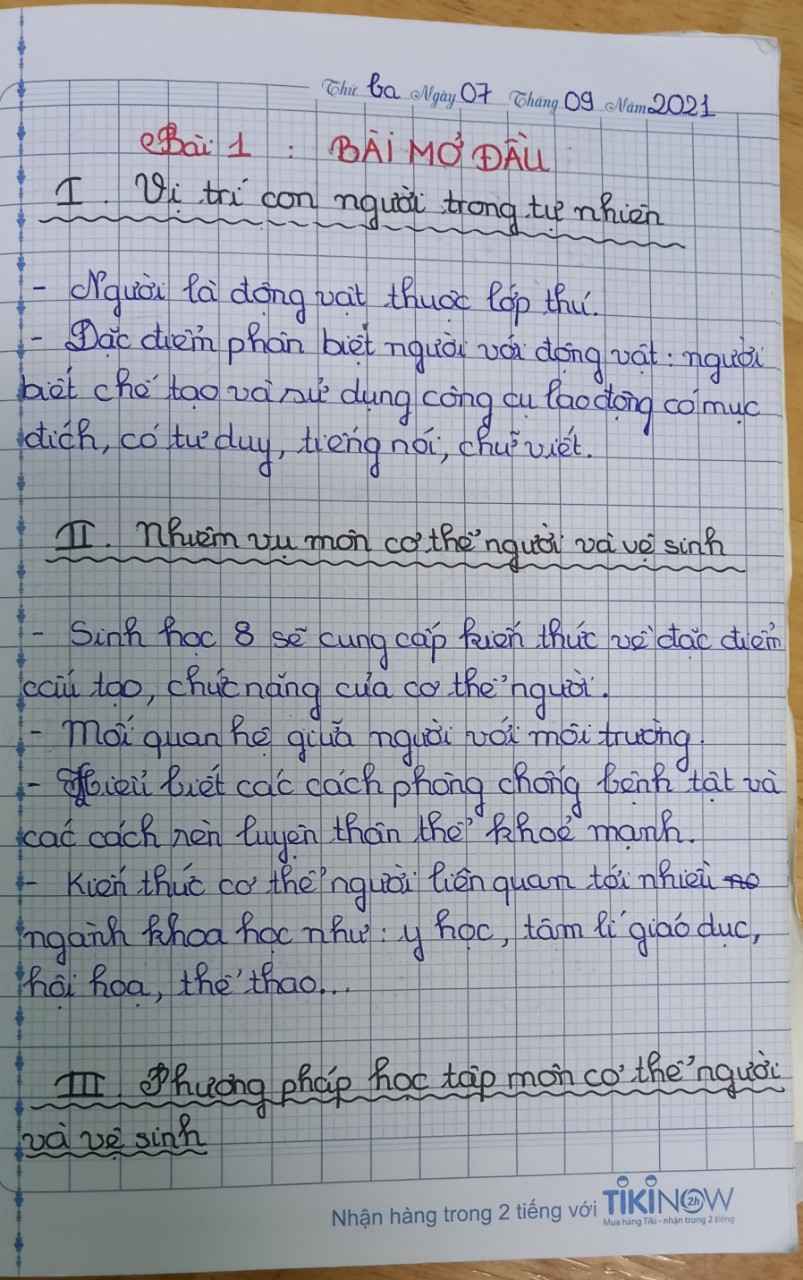 Thứ ba Ngày 07 Tháng 09 Năm 2021
Bài 1 : BÀI MỞ ĐẦU
I. Vị trí con người trong tự nhiên
- Người là động vật thuộc lớp thú.
- Đặc điểm phân biệt người với động vật: người
biết chế tạo và sử dụng công cụ lao động có mục
đích, có tư duy, tiếng nói, chữ viết.
II. Nhiệm vụ môn cơ thể người và vệ sinh
- Sinh học 8 sẽ cung cấp kiến thức về đặc điểm
cấu tạo, chức năng của cơ thể người.
- Mối quan hệ giữa người với môi trường.
- Hiểu biết các cách phòng chống bệnh tật và
các cách rèn luyện thân thể khoẻ mạnh.
- Kiến thức cơ thể người liên quan tới nhiều
ngành khoa học như: y học, tâm lí giáo dục,
hội hoạ, thể thao...
III. Phương pháp học tập môn cơ thể người
và vệ sinh
Nhận hàng trong 2 tiếng với TIKINOW 2h
Mua hàng Tiki - nhận trong 2 tiếng